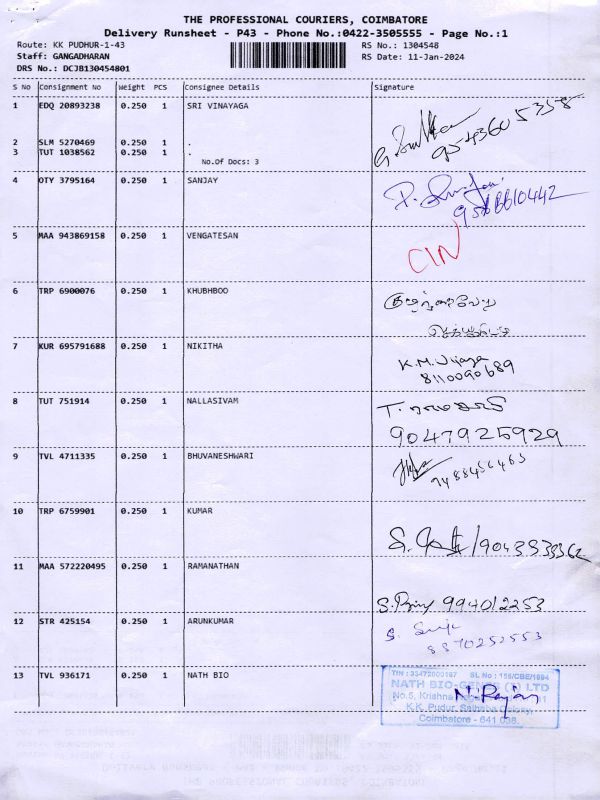 THE PROFESSIONAL COURIERS, COIMBATORE
Delivery Runsheet - P43 - Phone No.:0422-3505555 - Page No.:1
Route: KK PUDHUR-1-43 RS No.: 1304548
Staff: GANGADHARAN RS Date: 11-Jan-2024
DRS No.: DCJB130454801
S No Consignment No Weight PCS Consignee Details Signature
1 EDQ 20893238 0.250 1 SRI VINAYAGA
9543605358
2 SLM 5270469 0.250 1 .
3 TUT 1038562 0.250 1 .
No.Of Docs: 3
4 OTY 3795164 0.250 1 SANJAY
5 MAA 943869158 0.250 1 VENGATESAN
CIN
6 TRP 6900076 0.250 1 KHUBHBOO
7 KUR 695791688 0.250 1 NIKITHA
K.M.Vijaya
8110090689
8 TUT 751914 0.250 1 NALLASIVAM
9047925929
9 TVL 4711335 0.250 1 BHUVANESHWARI
9488456463
10 TRP 6759901 0.250 1 KUMAR
11 MAA 572220495 0.250 1 RAMANATHAN
994012253
12 STR 425154 0.250 1 ARUNKUMAR
8870252553
13 TVL 936171 0.250 1 NATH BIO
TIN : 33472000187 SL No : 156/CBE/1994
NATH BIO-GENES (I) LTD
No.5, Krishna
N.Rajan
K.K. Pudur, Saibaba Colony,
Coimbatore - 641 038.